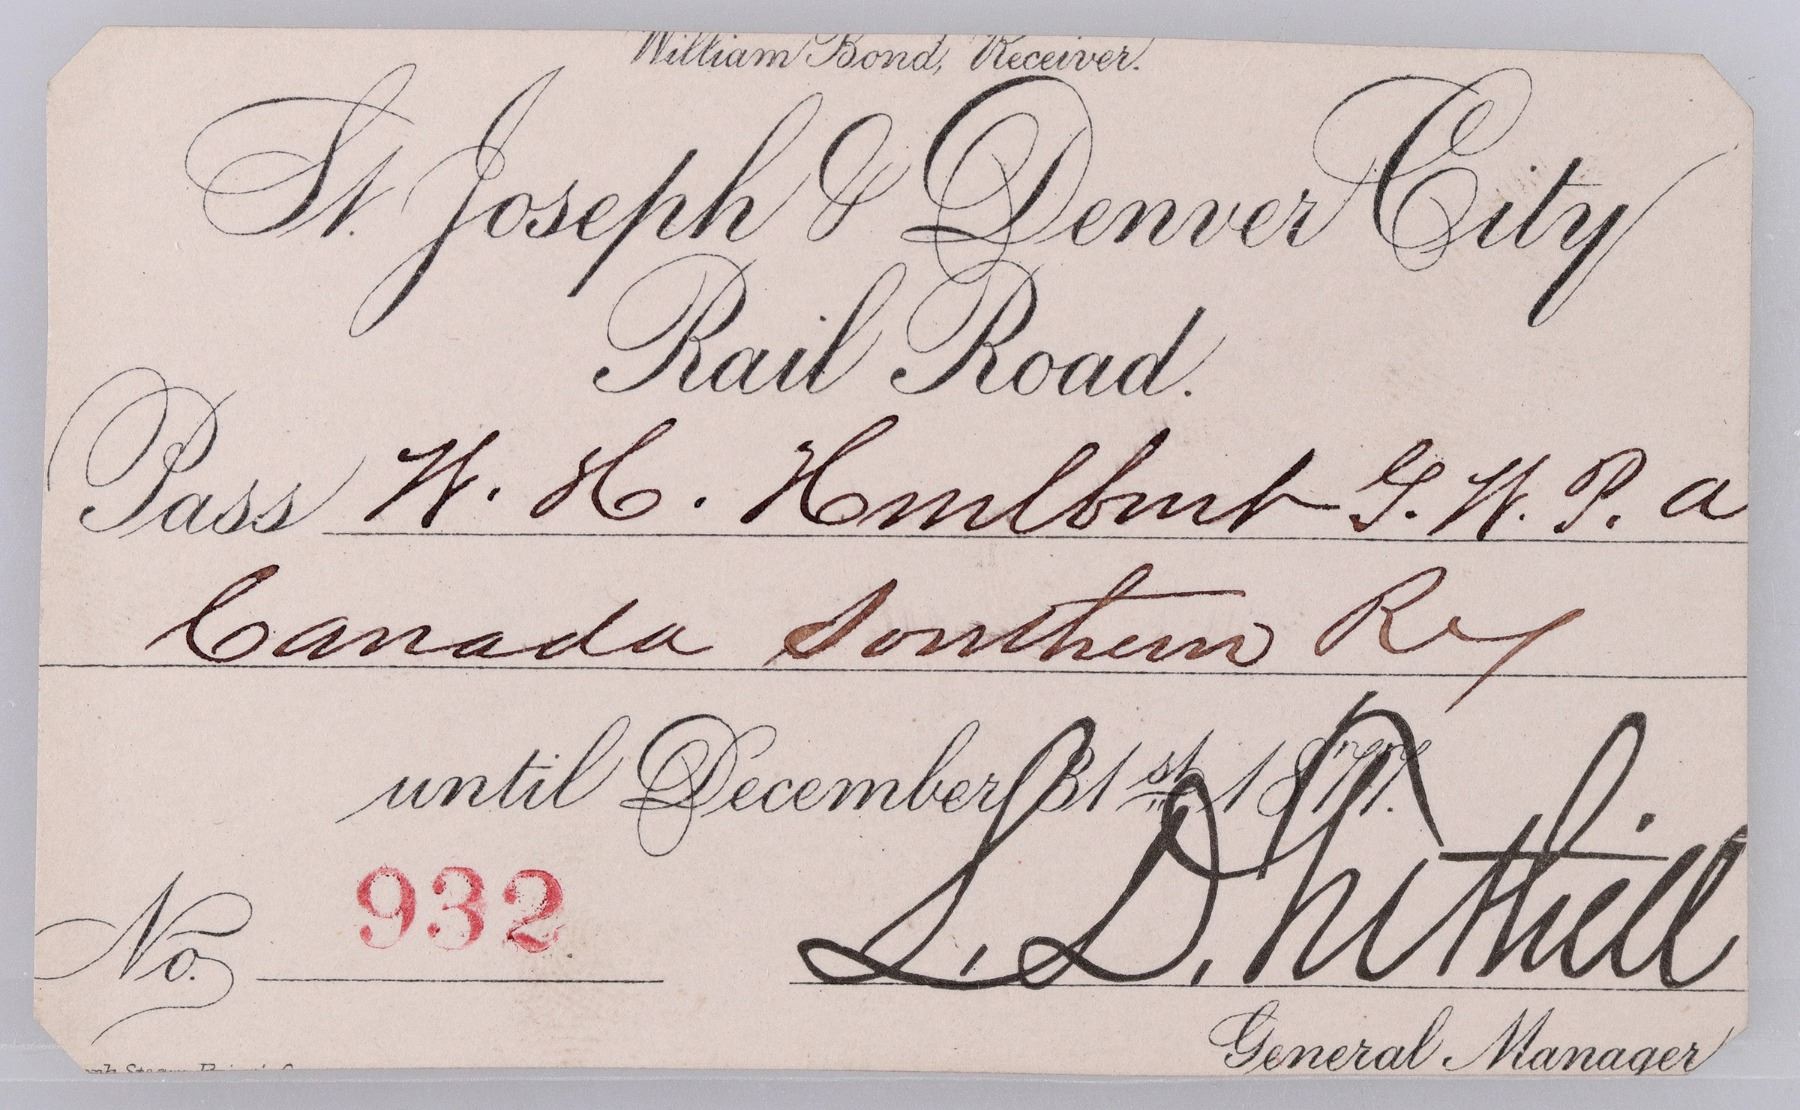 William Bond, Receiver.
St. Joseph & Denver City
Rail Road.
Pass W. H. Hurlburt G. W. P. a
Canada Southern Ry
until December 31st 1877.
No. 932
General Manager